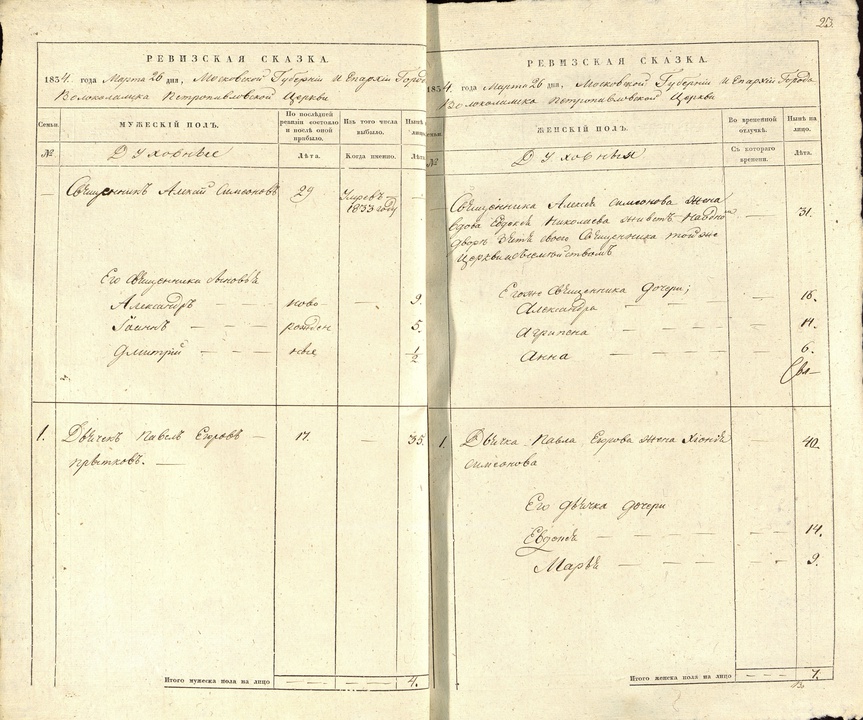 РЕВИЗСКАЯ СКАЗКА.
1834. года Марта 26 дня, Московской Губернии И Епархіи Города
Волоколамска Петропавловской Церкви
Семьи.
МУЖЕСКІЙ ПОЛЪ.
По послѣдней ревизіи состояло и послѣ оной прибыло.
Изъ того числа выбыло.
Нынѣ на лицо.
№
Духовные
Лѣта.
Когда именно.
Лѣта.
— Священникъ Алексѣй Симеоновъ 29 Умре въ —
1833 году
Его Священника сыновья
Александръ — — ново — 9.
Іоаннъ — — рожден — 5.
Дмитрій — — ные — 1/2
1. Дьячекъ Павелъ Егоровъ — 17. — 35.
Прытковъ. —
Итого мужеска пола на лицо 4.
23.
РЕВИЗСКАЯ СКАЗКА.
1834. года Марта 26 дня, Московской Губерніи И Епархіи Города
Волоколамска Петропавловской Церкви
Семьи.
ЖЕНСКІЙ ПОЛЪ.
Во временной отлучкѣ.
Нынѣ на лицо.
№
Духовныя
Съ котораго времени.
Лѣта.
Священника Алексѣя Симеонова жена
вдова Евдокія Николаева живетъ на
дворѣ Зятя своего Священника той же
Церкви — 31.
Его же Священника дочери;
Александра — 16.
Агрипена — — 14.
Анна — — 6.
1. Дьячка Павла Егорова жена Хіонія — 40.
Симеонова
Его Дьячка дочери
Евдокія — — 14.
Марья — — 9.
Итого женска пола на лицо — 7.